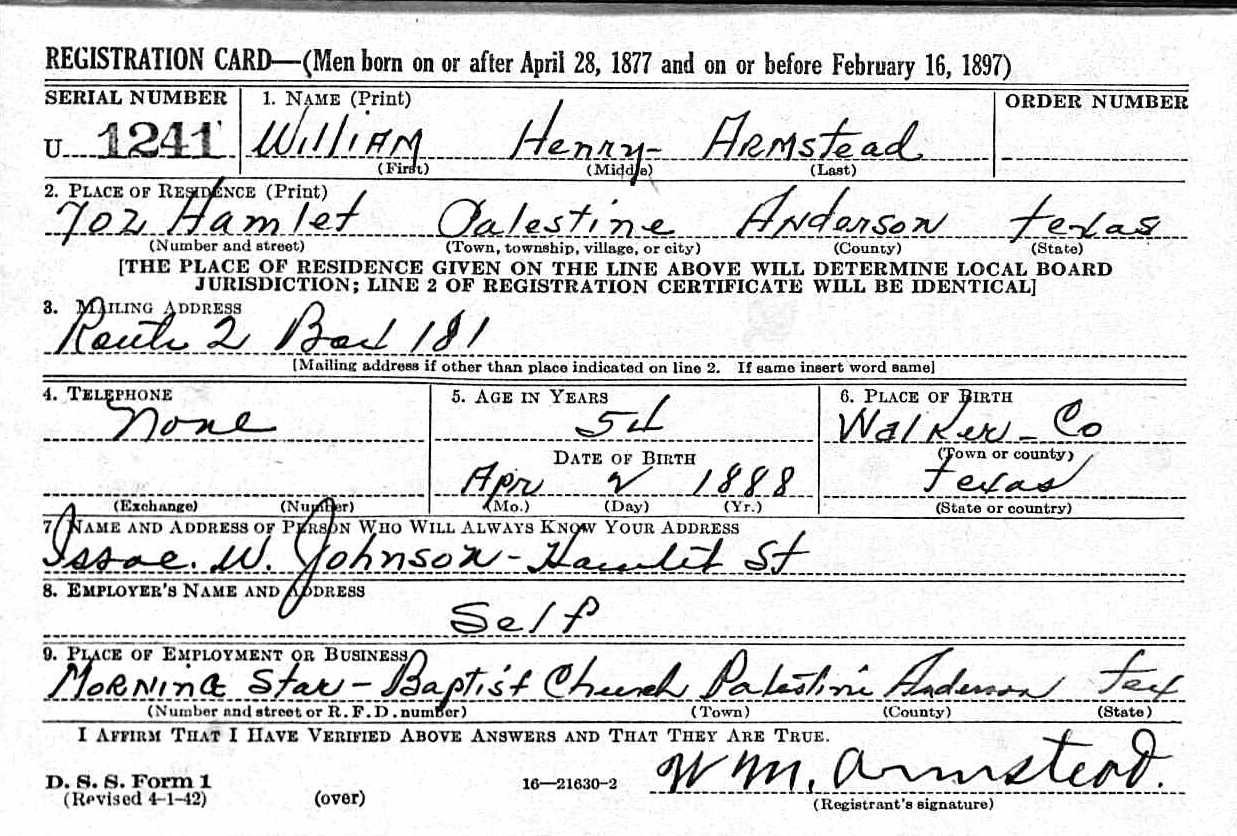 REGISTRATION CARD—(Men born on or after April 28, 1877 and on or before February 16, 1897)
SERIAL NUMBER 1. NAME (Print) ORDER NUMBER
U 1241 William Henry Armstead
(First) (Middle) (Last)
2. PLACE OF RESIDENCE (Print)
702 Hamlet Palestine Anderson Texas
(Number and street) (Town, township, village, or city) (County) (State)
[THE PLACE OF RESIDENCE GIVEN ON THE LINE ABOVE WILL DETERMINE LOCAL BOARD
JURISDICTION; LINE 2 OF REGISTRATION CERTIFICATE WILL BE IDENTICAL]
3. MAILING ADDRESS
Route 2 Box 181
[Mailing address if other than place indicated on line 2. If same insert word same]
4. TELEPHONE 5. AGE IN YEARS 6. PLACE OF BIRTH
None 54 Walker-Co
DATE OF BIRTH (Town or county)
Apr 2 1888 Texas
(Exchange) (Number) (Mo.) (Day) (Yr.) (State or country)
7. NAME AND ADDRESS OF PERSON WHO WILL ALWAYS KNOW YOUR ADDRESS
Issac. W. Johnson - Hamlet St
8. EMPLOYER'S NAME AND ADDRESS
Self
9. PLACE OF EMPLOYMENT OR BUSINESS
Morning Star - Baptist Church Palestine Anderson Tex
(Number and street or R. F. D. number) (Town) (County) (State)
I AFFIRM THAT I HAVE VERIFIED ABOVE ANSWERS AND THAT THEY ARE TRUE.
D. S. S. Form 1 16—21630-2 Wm. Armstead.
(Revised 4-1-42) (over) (Registrant's signature)